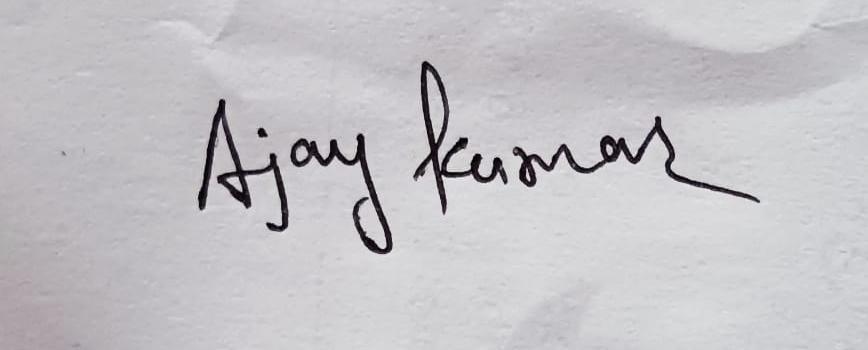 Ajay kumar